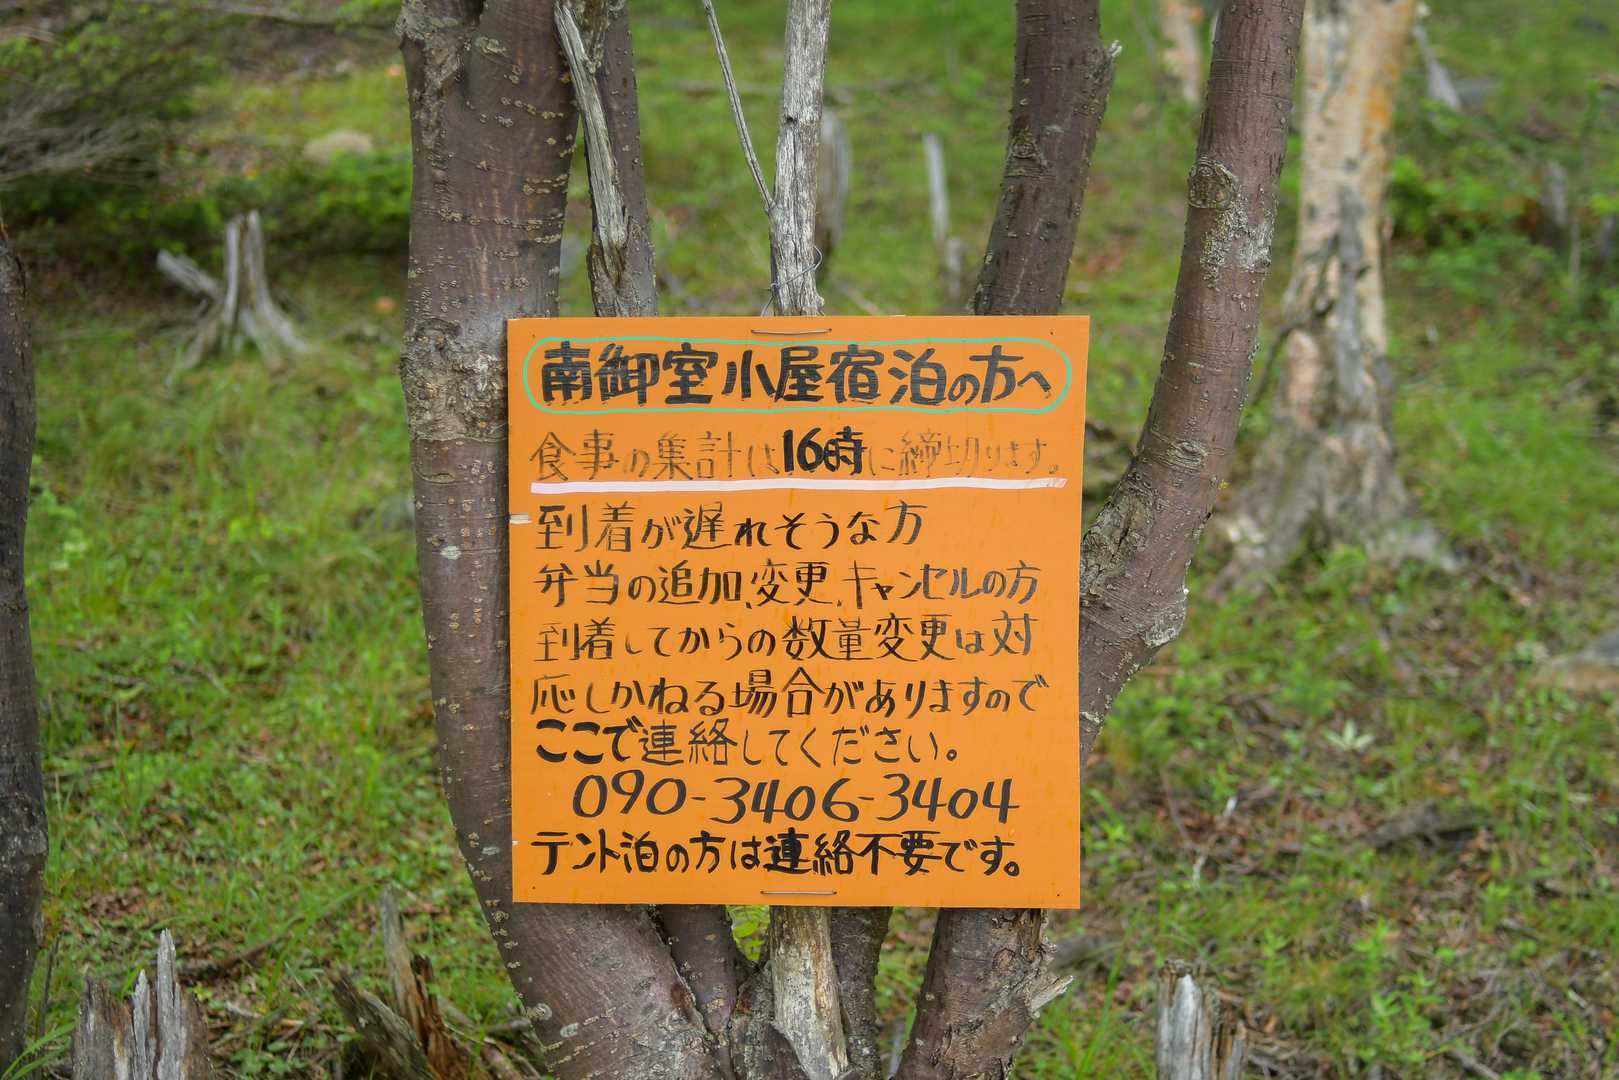 南御室小屋宿泊の方へ
食事の集計は16時に締切ります。
到着が遅れそうな方
弁当の追加、変更、キャンセルの方
到着してからの数量変更は対
応しかねる場合がありますので
ここで連絡してください。
090-3406-3404
テント泊の方は連絡不要です。